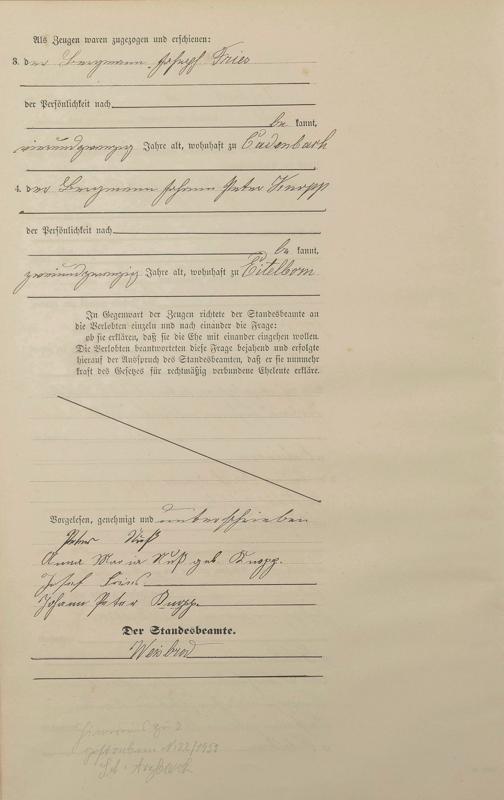 Als Zeugen waren zugezogen und erschienen:
3. der Bergmann Joseph Fries
der Persönlichkeit nach
be kannt,
vierundzwanzig Jahre alt, wohnhaft zu Cadenbach
4. der Bergmann Johann Peter Knopp
der Persönlichkeit nach
be kannt,
zweiundzwanzig Jahre alt, wohnhaft zu Eitelborn
In Gegenwart der Zeugen richtete der Standesbeamte an
die Verlobten einzeln und nach einander die Frage:
ob sie erklären, daß sie die Ehe mit einander eingehen wollen.
Die Verlobten beantworteten diese Frage bejahend und erfolgte
hierauf der Ausspruch des Standesbeamten, daß er sie nunmehr
kraft des Gesetzes für rechtmäßig verbundene Eheleute erkläre.
Vorgelesen, genehmigt und unterschrieben
Peter Nuß
Anna Maria Nuß geb. Knopp.
Josef Fries
Johann Peter Knopp.
Der Standesbeamte.
Weisbrod
gestorben N. 22/1953